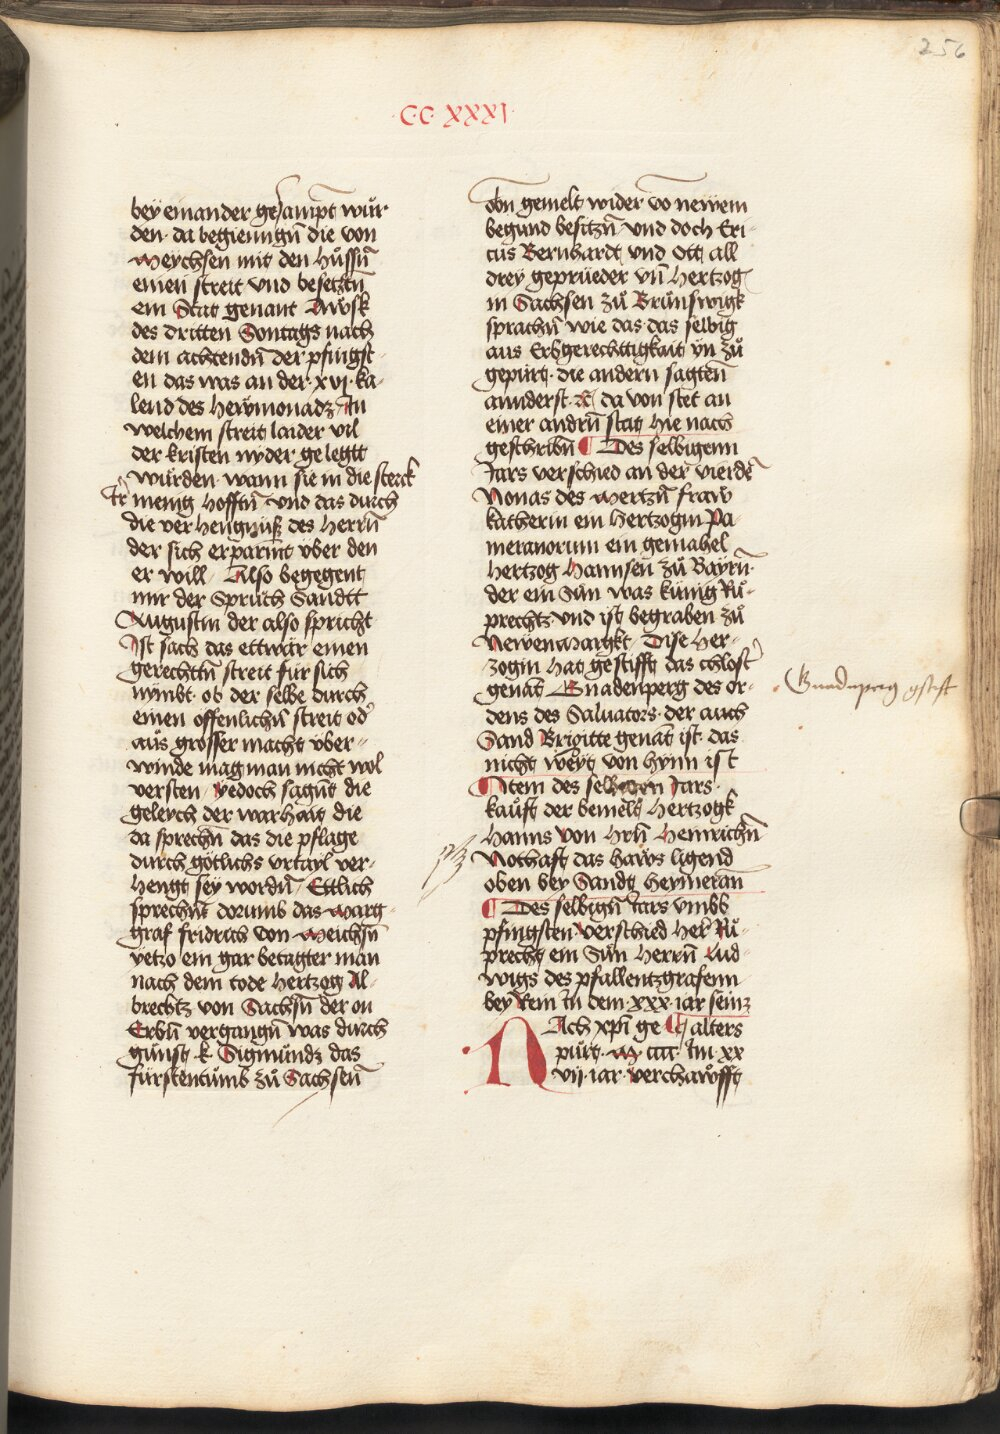 256
·C·C· XXXI·
bey einander gesampt wur·
den· da begienngn̄ die von
Meychsen mit den hussn̄
einen streit vnd besetztn̄
ein Stat genant Awsk
des dritten Sontags nach
dem achtendn̄ der pfingst-
en das was an der·xvj·ka-
lend des Hewmonadz· In
welchem streit laider vil
der kristen nyder gelegtt
wurden· wann sie in die sterck
Ir menig hofftn̄ vnd das durch
die verhengnuß des herrn̄
der sich erparmt vber den
er will / Also begegent
mir der Spruch Sandtt
Augustin der also spricht
Ist sach das ettwär einen
gerechtn̄ streit fur sich
nymbt· ob der selbe durch
einen offenlichn̄ streit od'
aus grosser macht vber-
winde mag man nicht wol
versten / yedoch sagnt die
geleych der warhait die
da sprechn̄ das die pflage
durch gotlichs vrtayl ver-
hengt sey wordn̄ / Ettlich
sprechnt dorumb das Marg-
graf fridrich von Meichsn̄
yetzo ein gar betagter man
nach dem tode hertzog Al-
brechtz von Sachsn̄ der on
Erbn̄ vergangn̄ was durch
gunst k· Sigmundz das
furstentumb zu Sachsen̄
obn̄ gemelt wider vō newem
begund besitzn̄ vnd doch Eri-
cus Bernhardt vnd Ott all
drey geprueder vn̄ hertzog
in Sachsen zu Brunswigk
sprachn̄ wie das das selbig
aus Erbgerechttigkait yn zu
gepurt· die andern sagten̄
annderst· ⁊c da von stet an
einer andrn̄ stat hie nach
geschribn̄ ¶ Des selbigenn
Jars verschied an der vierdē
Nonas des Mertzn̄ fraw
katherin ein hertzogin Pa-
meranorum ein gemahel
hertzog hannsen zu Bayrn̄·
der ein Sun was kunig Ru-
prechtz vnd ist begraben zu
Newenmargkt / Dise her-
zogin hat gestifft das chlost'
genāt Gnadenperg des or-
dens des Saluators· der auch
Sand Brigitte genāt ist· das
nicht weyt von hynn ist
¶ Item des selbigen Jars·
kauft der bemelt hertzogk
hanns von hrn̄ heinrichn̄
Nothaft das haws ligend
oben bey Sandt heymeran̄
¶ Des selbign̄ Jars vmbb
pfingsten verschied her' Ru-
precht ein Sun herrn̄ Lud-
wigs des pfallentzgrafenn
bey Rein In dem·xxx·iar seinz
NAch xp̄i ge ¶ alters
purt· M cccc· Im·xx
vij·iar· verchawfft
Gnadnperg gstift